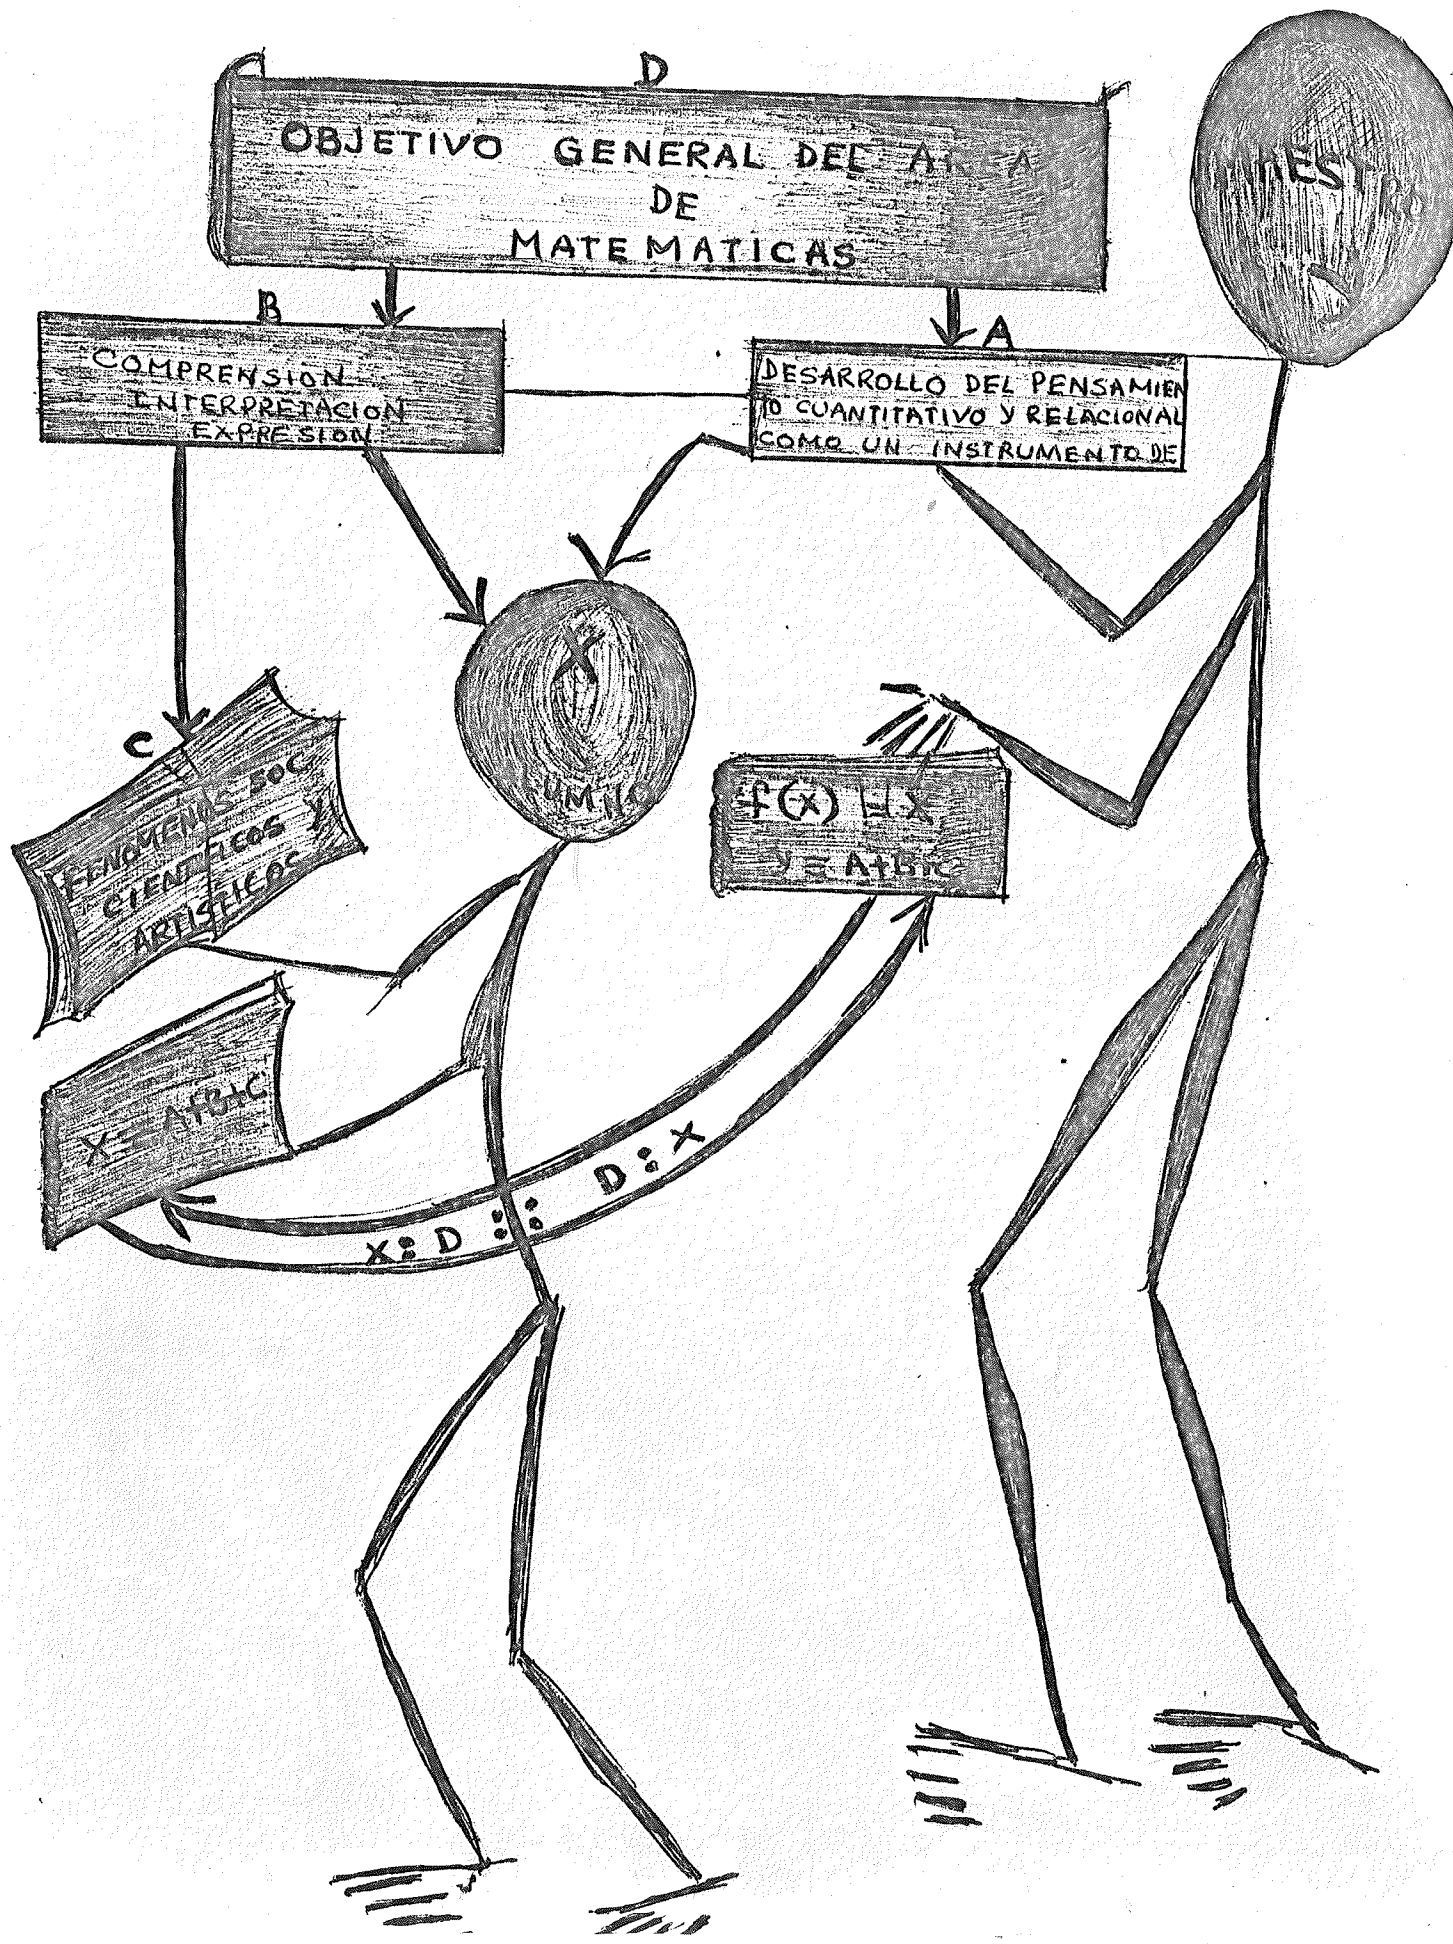 D
OBJETIVO GENERAL DEL AREA
DE
MATEMATICAS
MAESTRO
B
COMPRENSION
INTERPRETACION
EXPRESION
A
DESARROLLO DEL PENSAMIEN
TO CUANTITATIVO Y RELACIONAL
COMO UN INSTRUMENTO DE
X
LUMNO
C
FENOMENOS SOC
CIENTIFICOS Y
ARTISTICOS
f(x)
y = A+B+C
X = A+B+C
X : D :: D : X